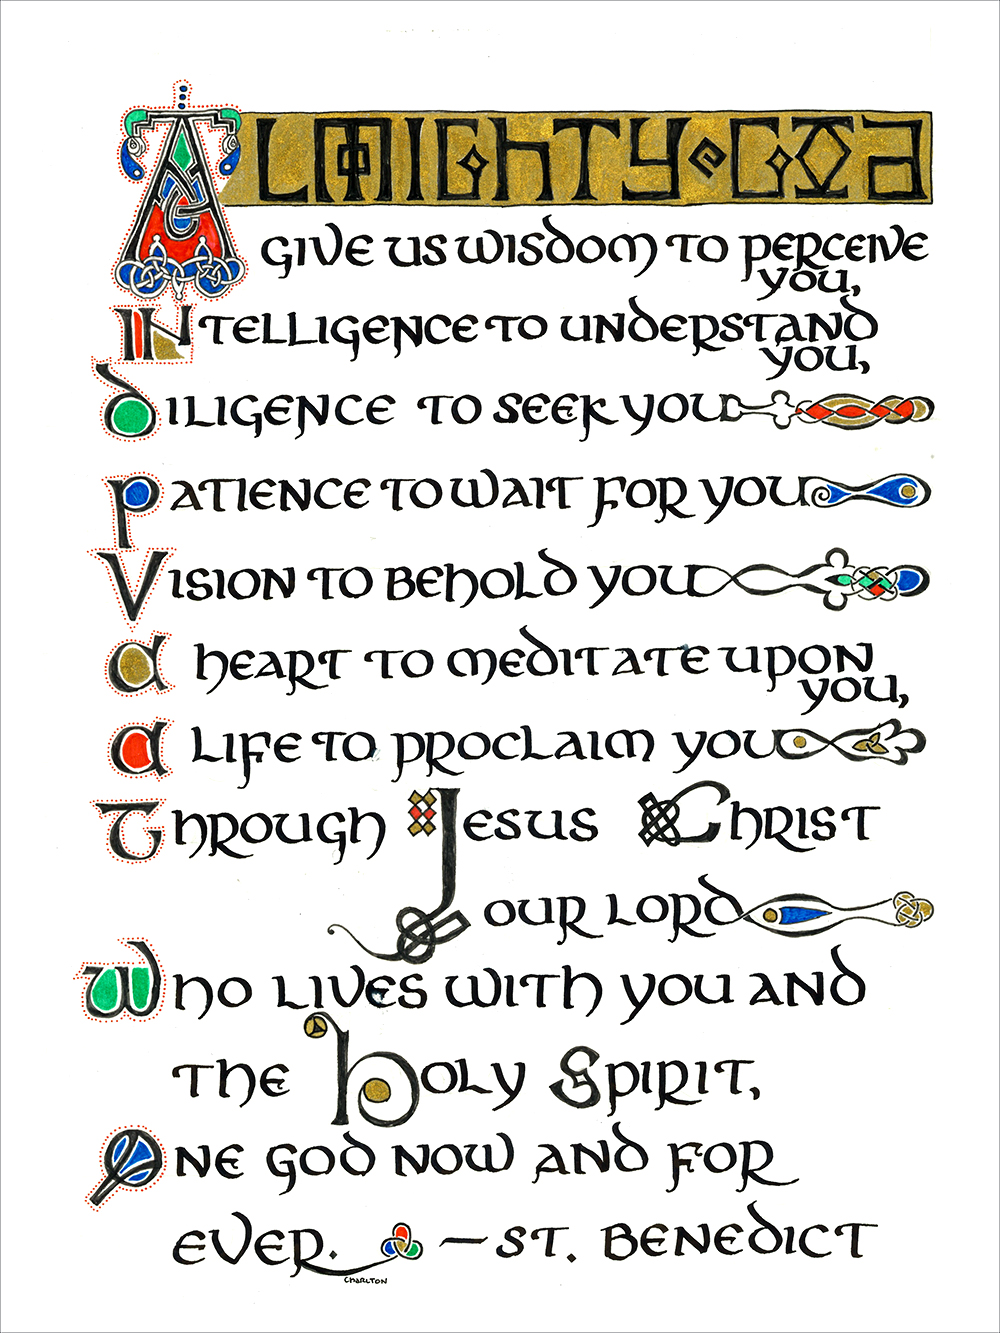 Almighty God
give us wisdom to perceive
you,
Intelligence to understand
you,
Diligence to seek you
Patience to wait for you
Vision to behold you
a heart to meditate upon
you,
a life to proclaim you
Through Jesus Christ
our Lord
Who lives with you and
the Holy Spirit,
One God now and for
ever. — St. Benedict
Charlton